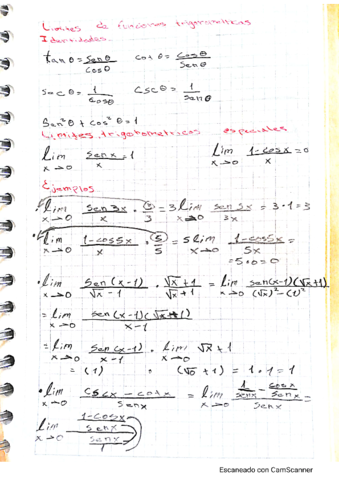 Limites de funciones trigonometricas
Identidades.
tan θ = Senθ/Cosθ   cot θ = Cosθ/Senθ
sec θ = 1/Cosθ   Cscθ = 1/Senθ
Sen²θ + Cos²θ = 1
Limites trigonometricos especiales
lim x→0 Senx/x = 1   lim x→0 1-Cosx/x = 0
Ejemplos
• lim x→0 Sen3x/x · (3)/3 = 3 lim x→0 Sen 3x/3x = 3·1 = 3
• lim x→0 1-Cos5x/x · (5)/5 = 5 lim x→0 1-Cos5x/5x =
= 5·0 = 0
• lim x→0 Sen(x-1)/√x - 1 · √x + 1/√x + 1 = lim x→0 Sen(x-1)(√x+1)/(√x)² - (1)²
= lim x→0 Sen(x-1)(√x+1)/x-1
= lim x→0 Sen(x-1)/x-1 · lim x→0 √x + 1
= (1) · (√0 + 1) = 1·1 = 1
• lim x→0 CSCx - Cotx/Senx = lim x→0 1/Senx - Cosx/Senx/Senx =
lim x→0 1-Cosx/Senx/Senx/1
Escaneado con CamScanner